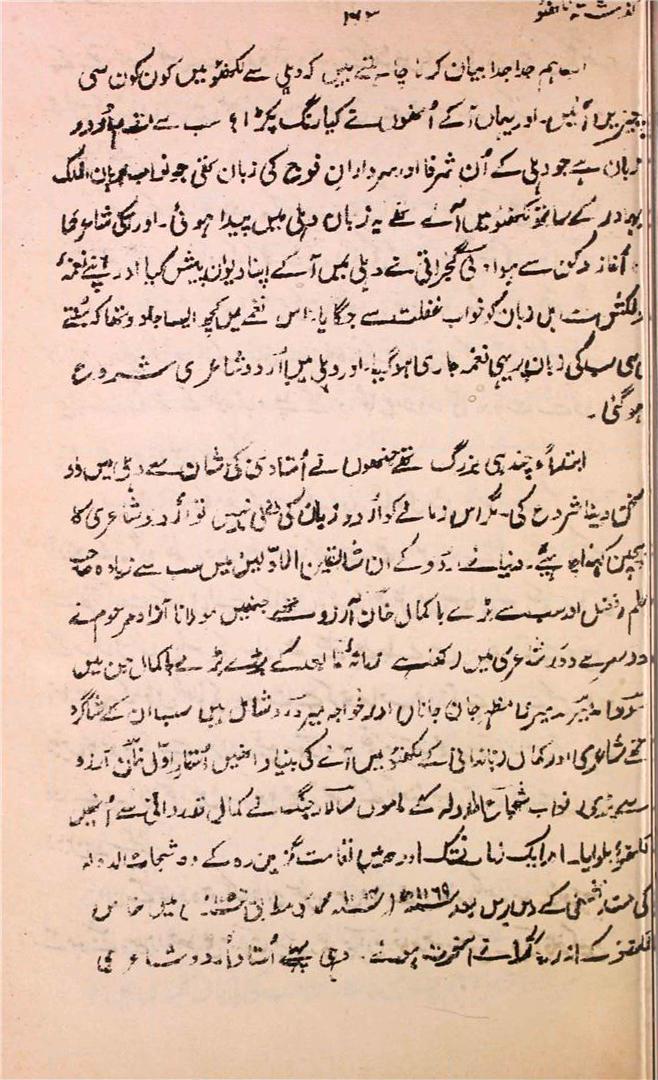 گذشتہ لکھنؤ
۱۴۳
اب ہم جدا جدا بیان کرنا چاہتے ہیں کہ دہلی سے لکھنؤ میں کون کون سی
چیزیں آئیں۔ اور یہاں آ کے اُنھوں نے کیا رنگ پکڑا؟ سب سے مقدم اُردو
زبان ہے جو دہلی کے اُن شرفا اور سردارانِ فوج کی زبان تھی جو نواب برہان الملک
بہادر کے ساتھ لکھنؤ میں آئے تھے یہ زبان دہلی میں پیدا ہوئی۔ اور اسکی شاعری کا
آغاز دکن سے ہوا۔ ولی گجراتی نے دہلی میں آ کے اپنا دیوان پیش کیا اور اپنے نغمۂ
دلکش سے اہل زبان کو خواب غفلت سے جگایا۔ اس نغمے میں کچھ ایسا جادو تھا کہ سُنتے
ہی سب کی زبان پر یہی نغمہ جاری ہو گیا۔ اور دہلی میں اُردو شاعری شروع
ہو گئی۔
ابتداءً چند ہی بزرگ تھے جنھوں نے اُستادی کی شان سے دہلی میں داد
سخن دینا شروع کی۔ مگر اس زمانے کو اُردو زبان کی نہیں تو اُردو شاعری کا
بچپن کہنا چاہیے۔ دنیائے اردو کے ان سابقین الاولین میں سب سے زیادہ صاحب
علم و فضل اور سب سے بڑے باکمال خان آرزو تھے جنھیں مولانا آزاد مرحوم نے
دوسرے دور شاعری میں رکھا ہے زمانۂ مابعد کے بڑے بڑے باکمال جن میں
سودا۔ میر۔ میرزا مظہر جان جاناں اور خواجہ میر درد شامل ہیں سب ان کے شاگرد
تھے شاعری اور کمال زباندانی کے لکھنؤ میں آنے کی بنیاد انھیں اُستاد اول خان آرزو
سے پڑی۔ نواب شجاع الدولہ کے ماموں سالار جنگ نے کمال قدردانی سے اُنھیں
لکھنؤ بلوایا۔ اور ایک زمانے تک اودھ میں اقامت گزیں رہ کے وہ شجاع الدولہ
کی مسند نشینی کے دو برس بعد ۱۱۶۹ھ میں خاص
لکھنؤ کے اندر سفر آخرت ہوئے۔ وہی پہلے اُستاد اُردو شاعری